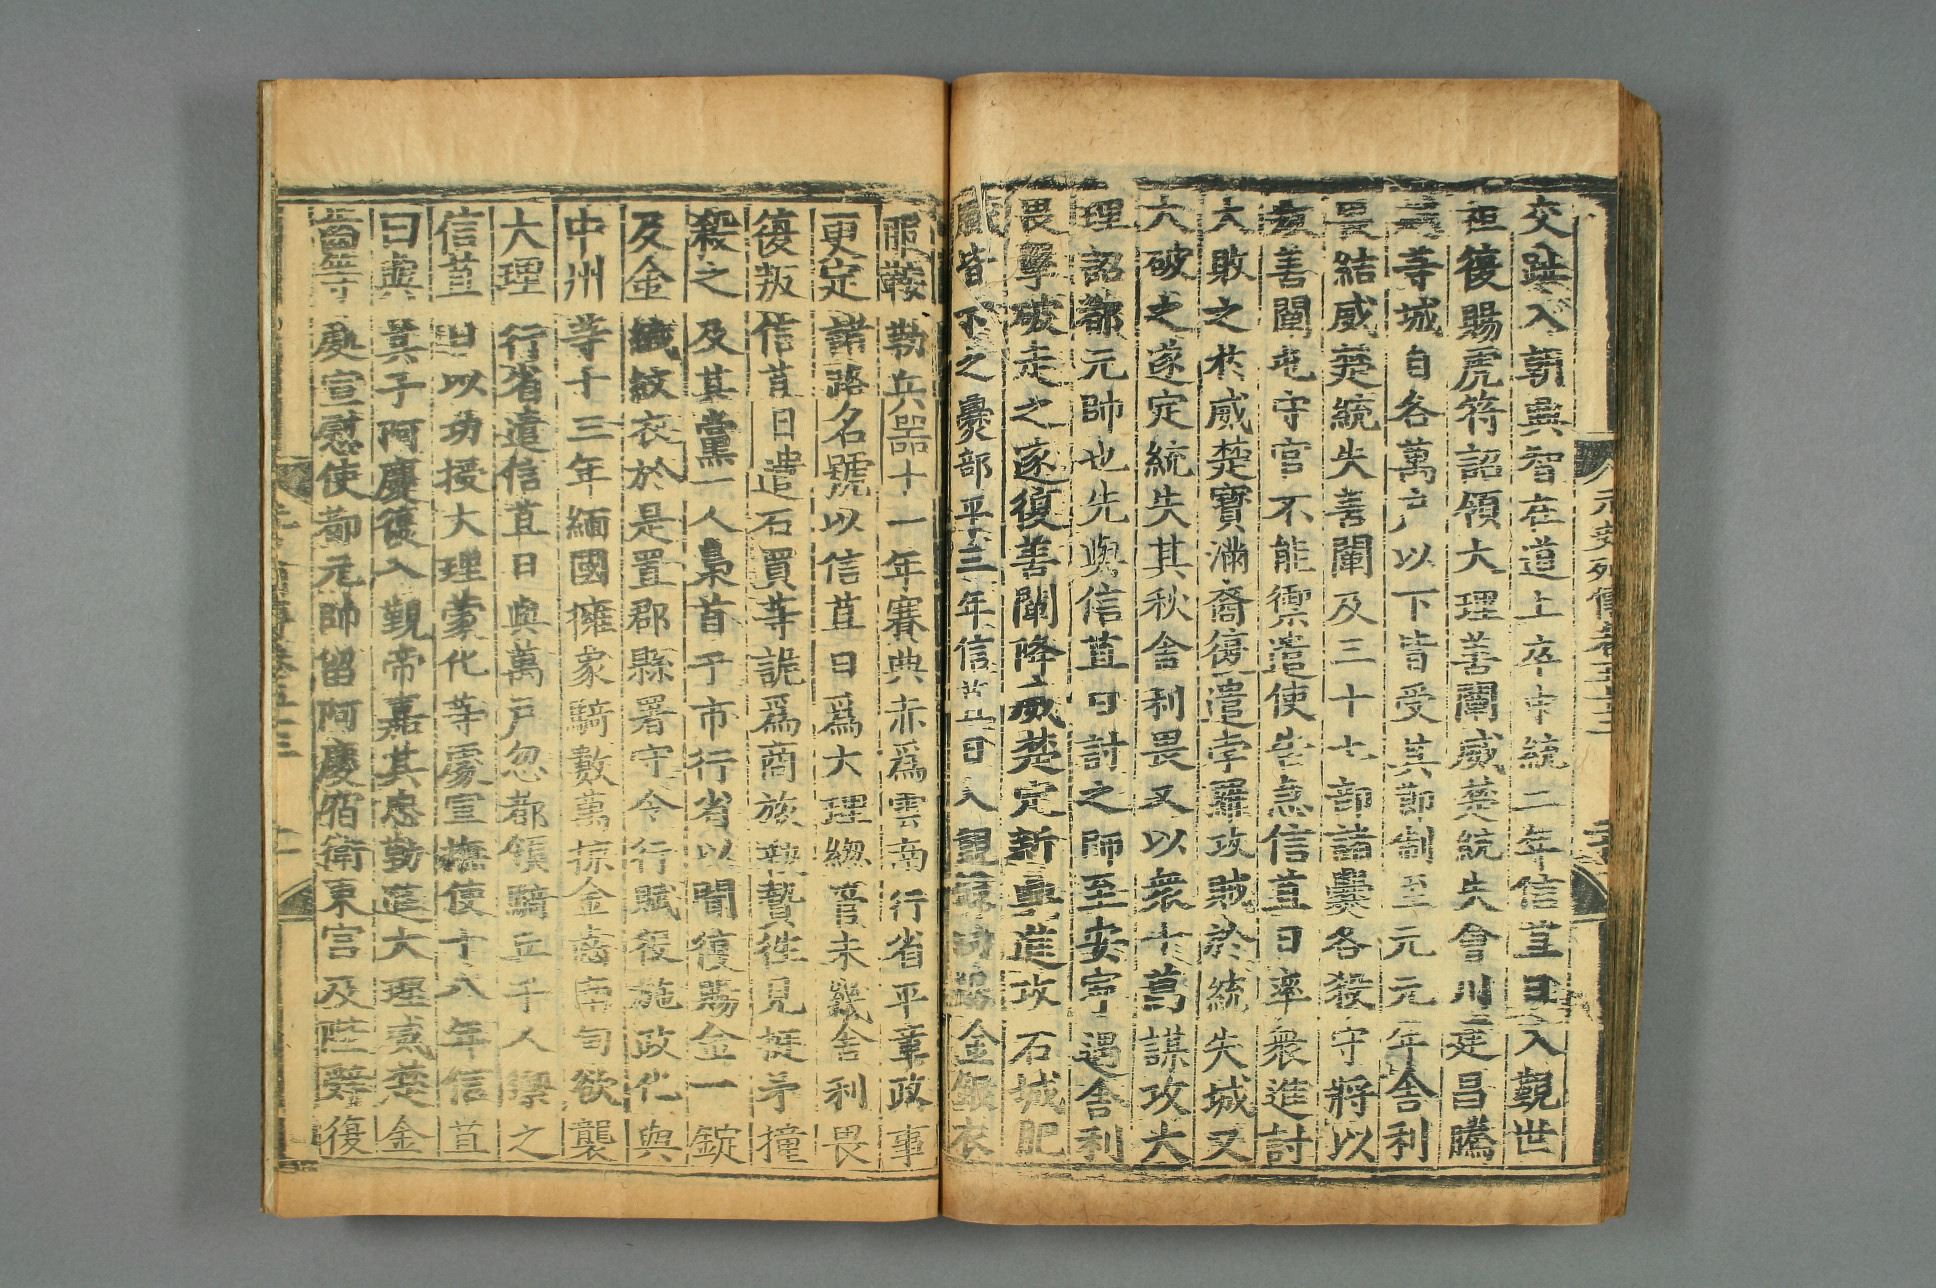 交趾入朝興智在道上卒中統二年信苴日入覲世
祖復賜虎符詔領大理善闡威楚統失會川建昌騰
越等城自各萬戶以下皆受其節制至元元年舍利
畏結威楚統失善闡及三十七部諸爨各殺守將以
叛善闡屯守官不能禦遣使告急信苴日率衆進討
大敗之於威楚寶滿裔復遣孛羅攻賊於統失城又
大破之遂定統失其秋舍利畏又以衆十萬謀攻大
理詔都元帥也先與信苴日討之師至安寧遇舍利
畏擊破走之遂復善闡降威楚定新興進攻石城肥
膩皆下之爨部平三年信苴日入覲錄功賜金銀衣
服鞍勒兵器十一年賽典赤爲雲南行省平章政事
更定諸路名號以信苴日爲大理緫管未幾舍利畏
復叛信苴日遣石買等詭爲商旅執贄往見挺矛撞
殺之及其黨一人梟首于市行省以聞復賜金一錠
及金織紋衣於是置郡縣署守令行賦役施政化與
中州等十三年緬國擁象騎數萬掠金齒南甸欲襲
大理行省遣信苴日與萬戶忽都領騎千人禦之
信苴日以功授大理蒙化等處宣撫使十八年信苴
日與其子阿慶復入覲帝嘉其忠勤進大理威楚金
齒等處宣慰使都元帥留阿慶宿衛東宮及陛辭復